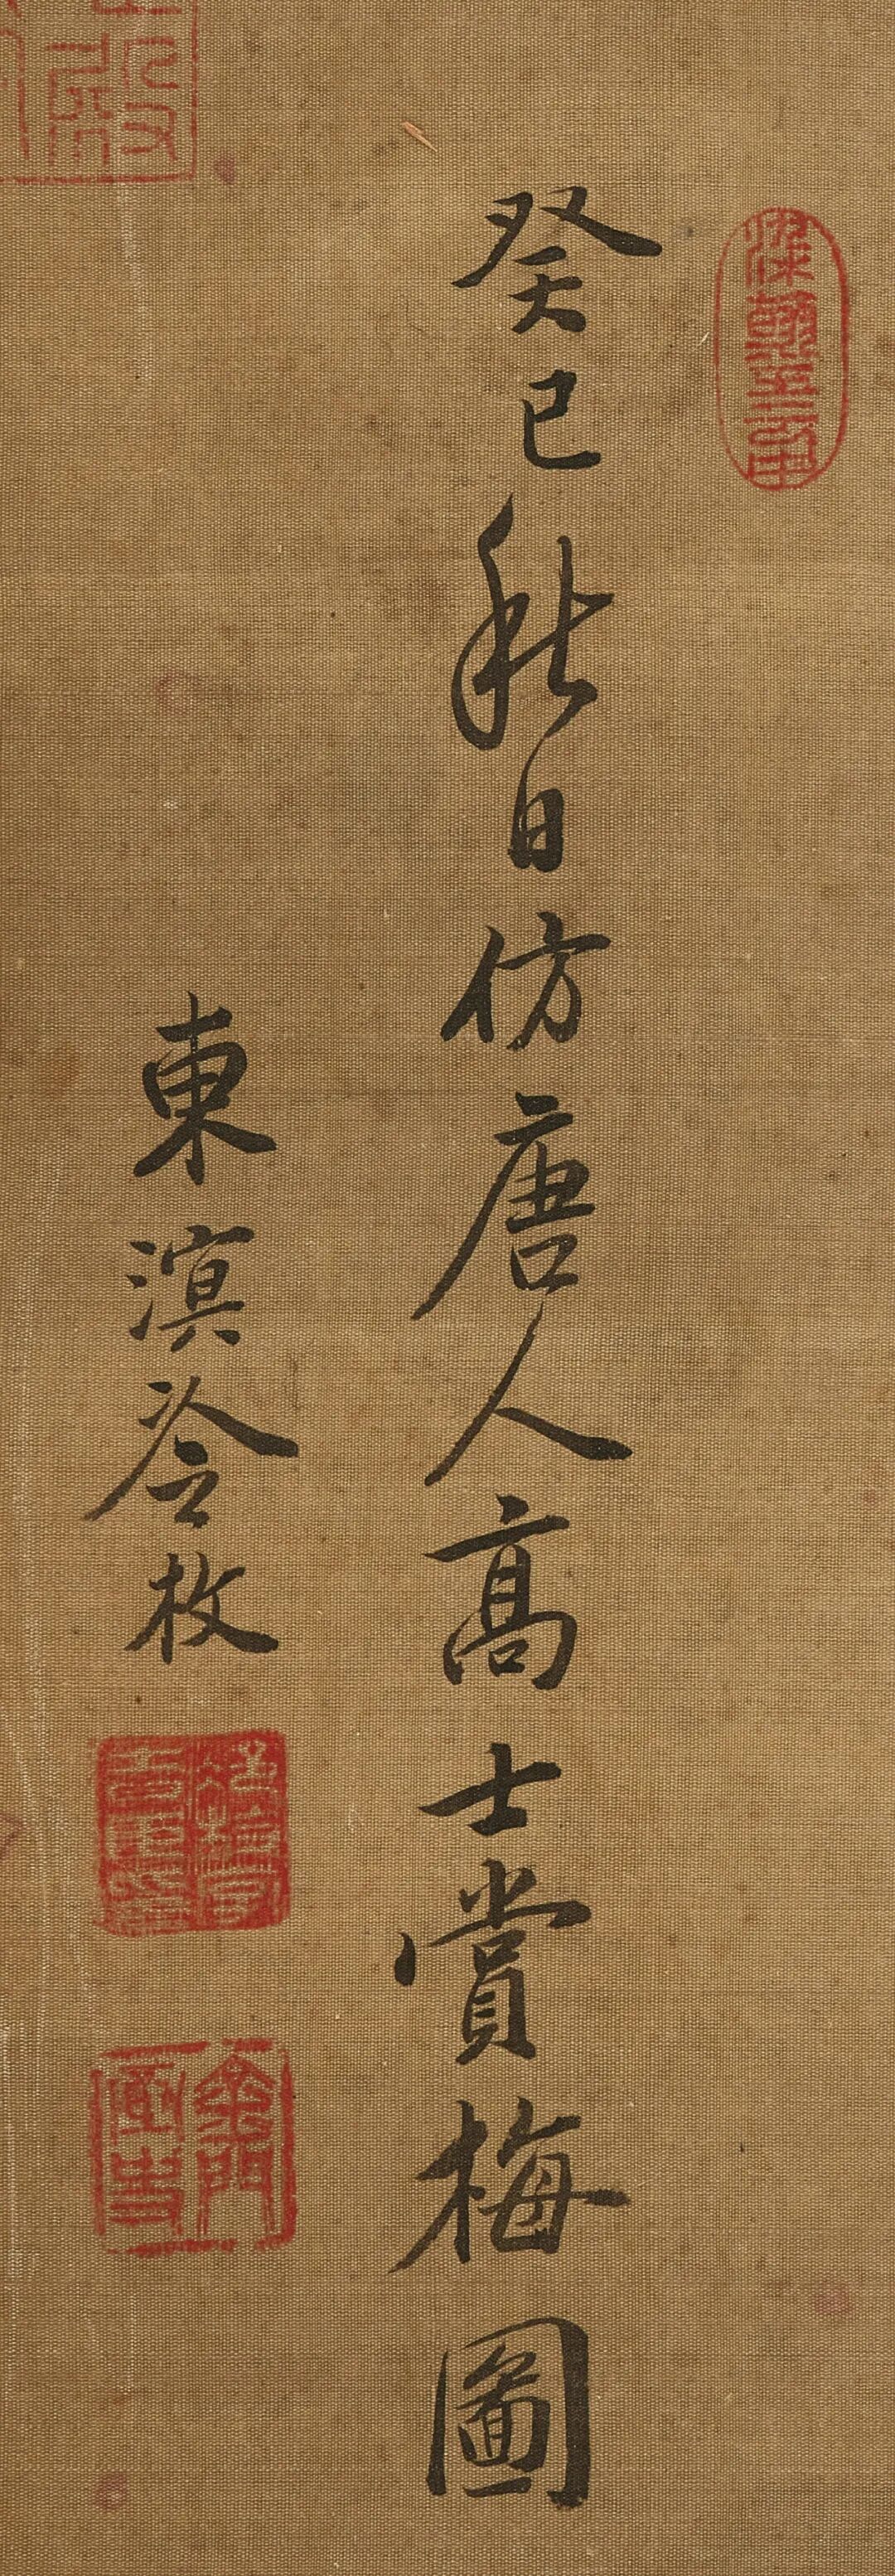 癸巳秋日仿唐人高士賞梅圖
東溟冷枚
金門畫史